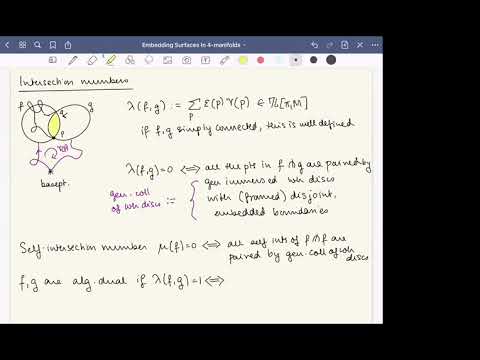 Embedding Surfaces in 4-manifolds
Intersection numbers
f
g
q
p
γ(p)
basept.
λ(f,g) := Σ ε(p) γ(p) ∈ ℤ[π₁M]
p
if f,g simply connected, this is well defined
λ(f,g)=0 ⟺ all the pts in f ⋔ g are paired by
gen immersed wh discs
with (framed) disjoint,
embedded boundaries
gen. coll
of wh discs :=
Self-intersection number μ(f)=0 ⟺ all self ints of f ⋔ f are
paired by gen. coll of wh
discs
f,g are alg. dual if λ(f,g)=1 ⟺